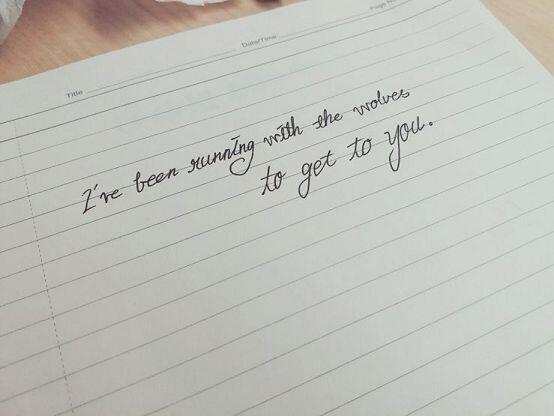 Title
Date/Time
Page No
I've been running with the wolves
to get to you.